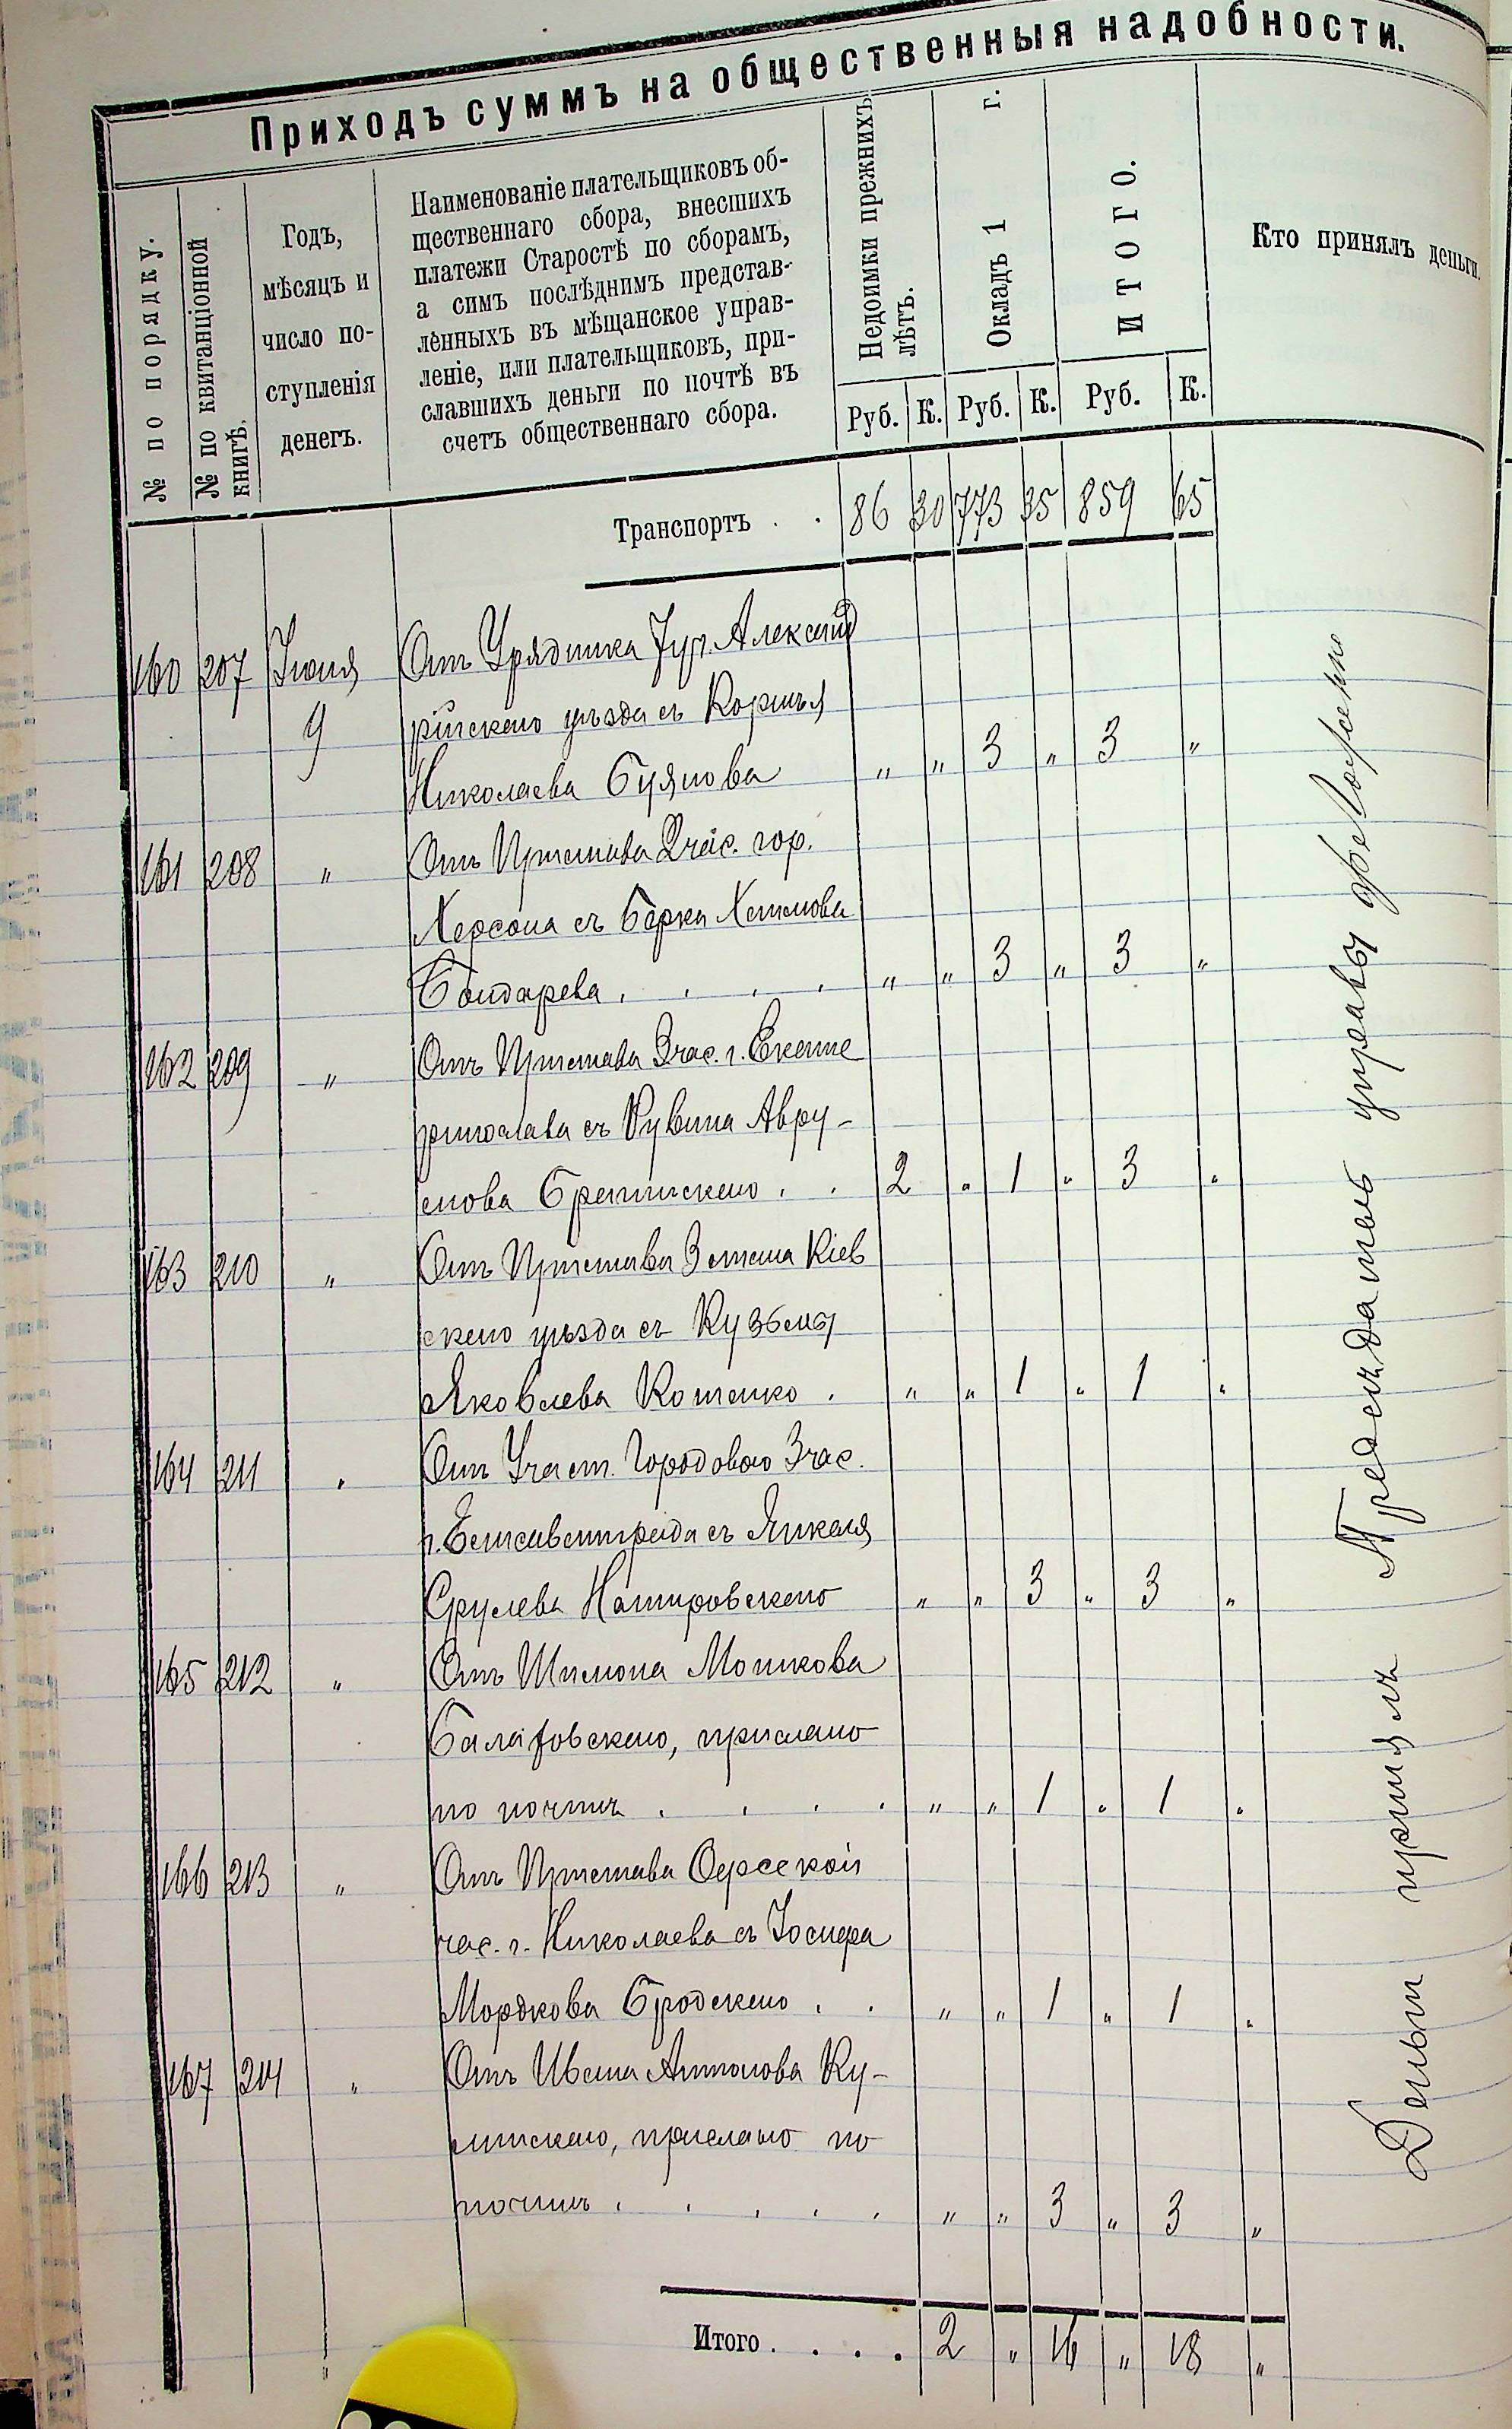 Приходъ суммъ на общественныя надобности.
№ по порядку.
№ по квитанціонной
книгѣ.
Годъ,
мѣсяцъ и
число по-
ступленія
денегъ.
Наименованіе плательщиковъ об-
щественнаго сбора, внесшихъ
платежи Старостѣ по сборамъ,
а симъ послѣднимъ представ-
ленныхъ въ мѣщанское управ-
леніе, или плательщиковъ, при-
славшихъ деньги по почтѣ въ
счетъ общественнаго сбора.
Недоимки прежнихъ
лѣтъ.
Окладъ 1 г.
ИТОГО.
Кто принялъ деньги.
Руб. К. Руб. К. Руб. К.
Транспортъ . . 86 30 773 35 859 65
160 207 Іюня Отъ Урядника Александ
9 рійскаго уѣзда съ Корнѣя
Николаева Буянова " " 3 " 3 "
161 208 " Отъ Пристава 2 час. гор.
Херсона съ Берки Хаимова
Бондарева . . . . " " 3 " 3 "
162 209 " Отъ Пристава 3 час. г. Екате
ринослава съ Рувина Авру-
мова . . 2 " 1 " 3 "
163 210 " Отъ Пристава 3 стана Кіев
скаго уѣзда съ Кузьмы
Яковлева Котенко . " " 1 " 1 "
164 211 " Отъ Участ. Городового 3 час.
г. Елисаветграда съ Янкеля
Срулева " " 3 " 3 "
165 212 " Отъ Шимона Мошкова
прислано
по почтѣ . . . . " " 1 " 1 "
166 213 " Отъ Пристава Одесской
час. г. Николаева съ Іосифа
Мордкова Бродскаго . . " " 1 " 1 "
167 214 " Отъ Ивана Антонова Ку-
прислано по
почтѣ . . . . . " " 3 " 3 "
Итого . . . . 2 " 16 " 18 "
Деньги принялъ Предсѣдатель управы